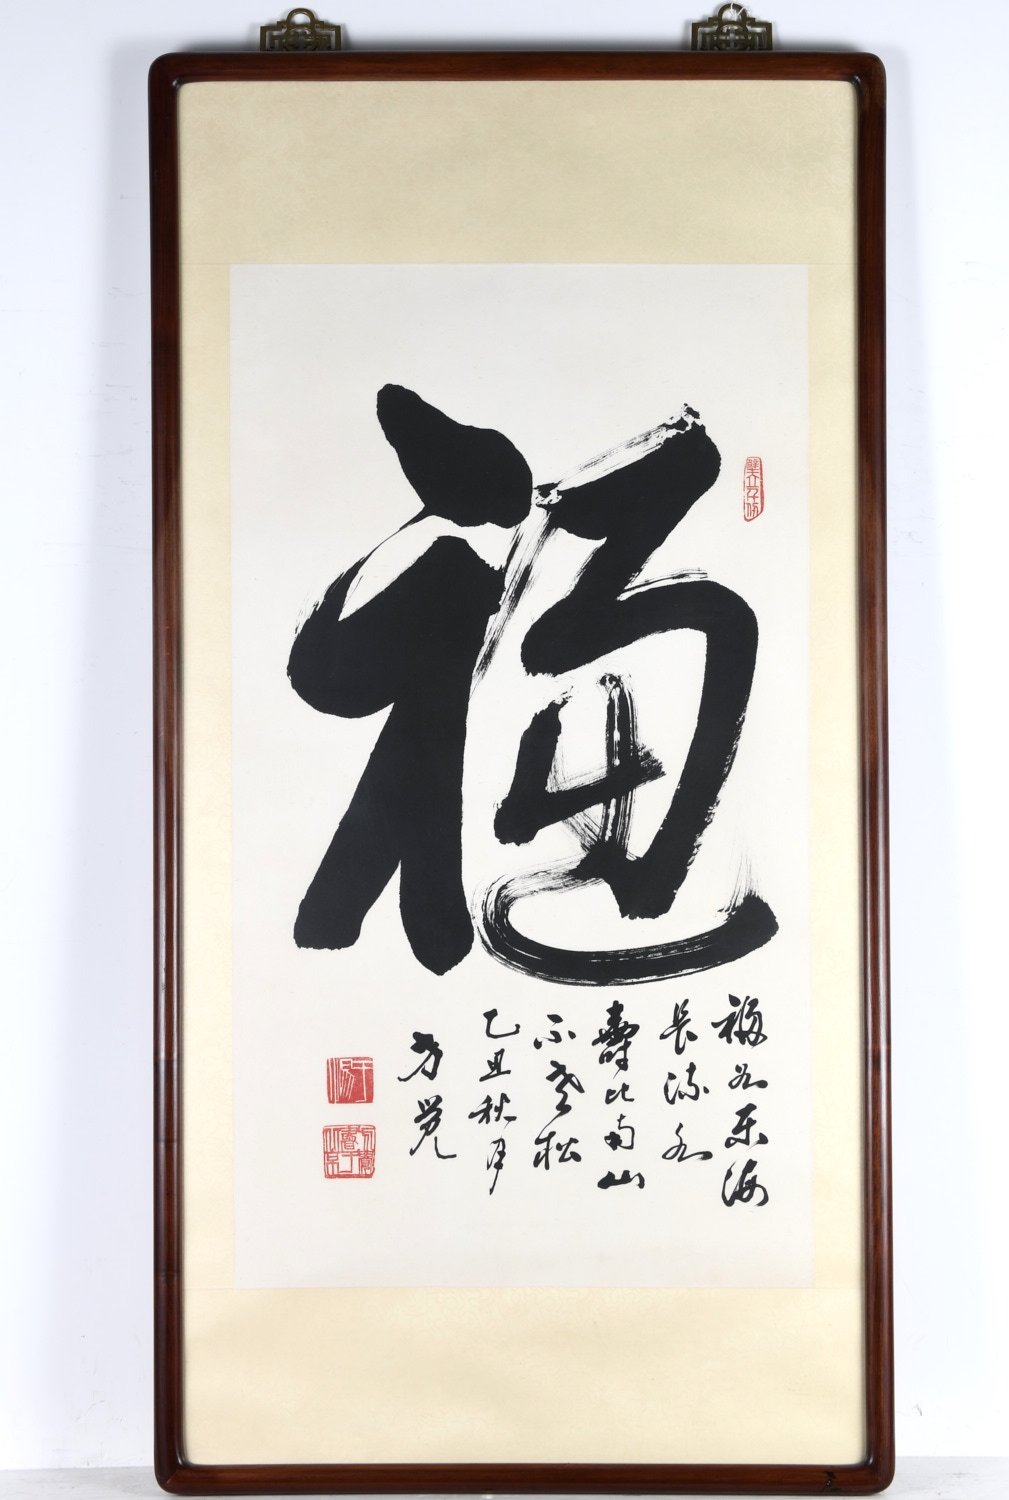 福
福如东海
長流水
壽比南山
不老松
乙丑秋月